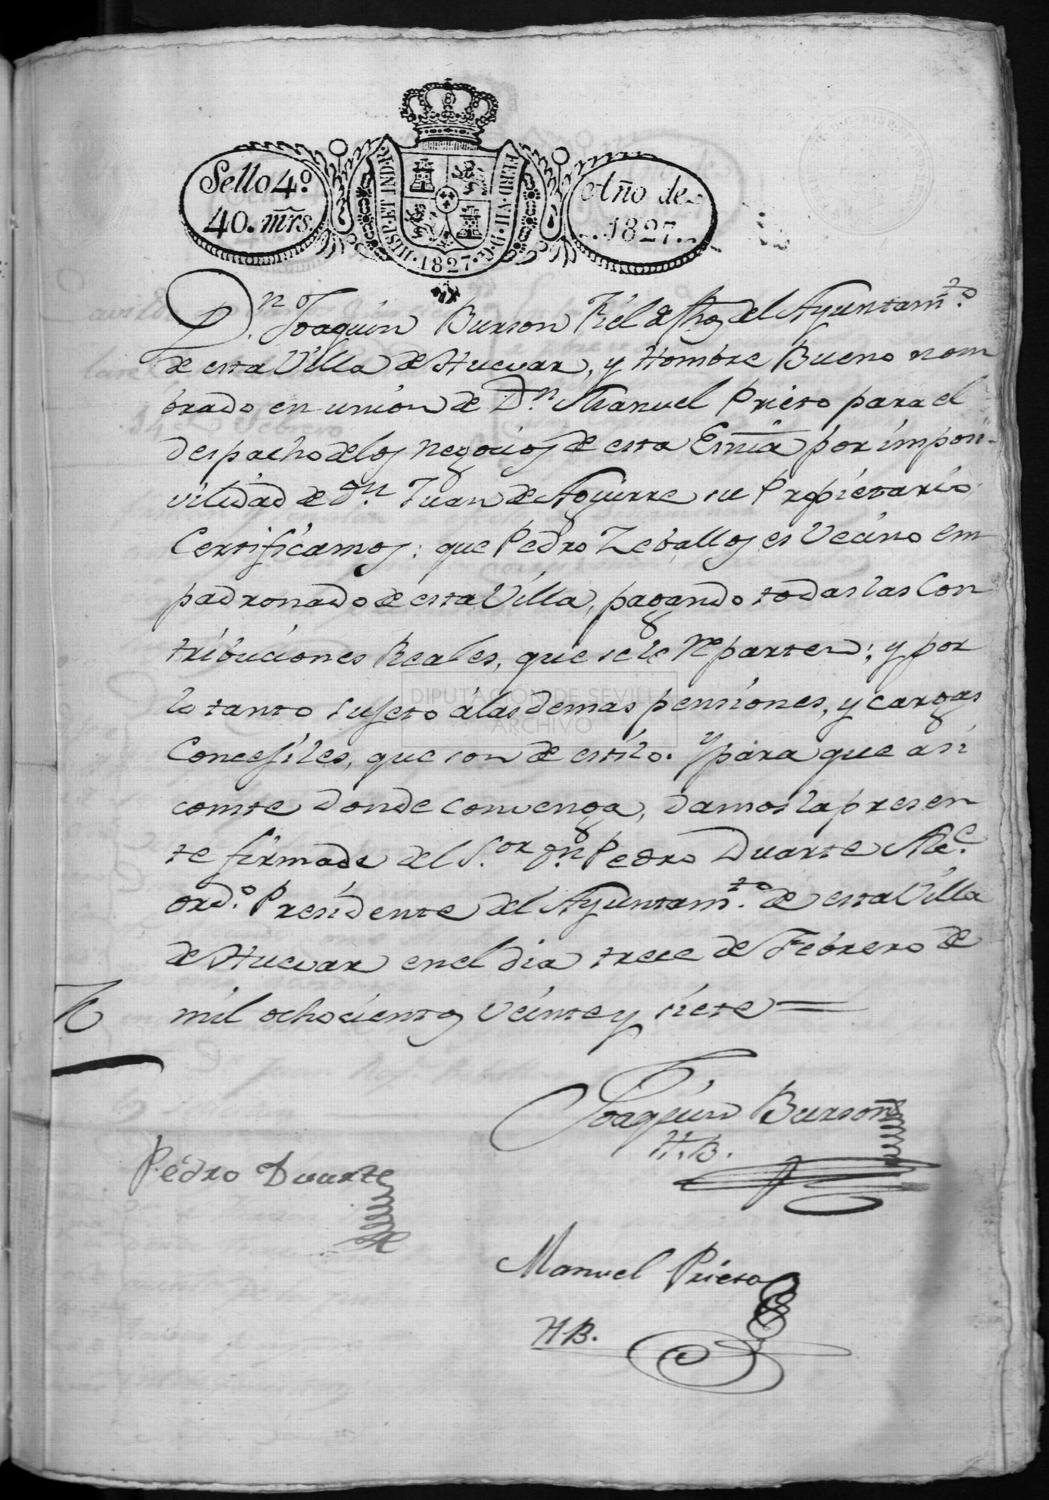 Sello 4º
40. mrs.
HISP. ET IND. R.
FERD. VII. D. G.
1827
Año de
1827
Dn. Joaquin Burson del Ayuntamto.
de esta Villa de Huevar, y Hombre Bueno nom
brado en union de Dn. Manuel Prieto para el
despacho de los negocios de esta Esnia por imposi-
vilidad de Dn. Juan de Aguirre su Propietario
Certificamos; que Pedro Zeballos es Vecino em
padronado de esta Villa, pagando todas las Con
tribuciones Reales, que se le reparten; y por
lo tanto sujeto a las demas pensiones, y cargas
Concejiles, que son de estilo. Y para que asi
conste donde convenga, damos la presen
te firmada del Sor. Dn. Pedro Duarte Alce.
ordo. Presidente del Ayuntamto. de esta Villa
de Huevar en el dia trece de Febrero de
mil ochocientos veinte y siete =
Joaquin Burson
H.B.
Pedro Duarte
Manuel Prieto
HB.
DIPUTACIÓN DE SEVILLA
ARCHIVO